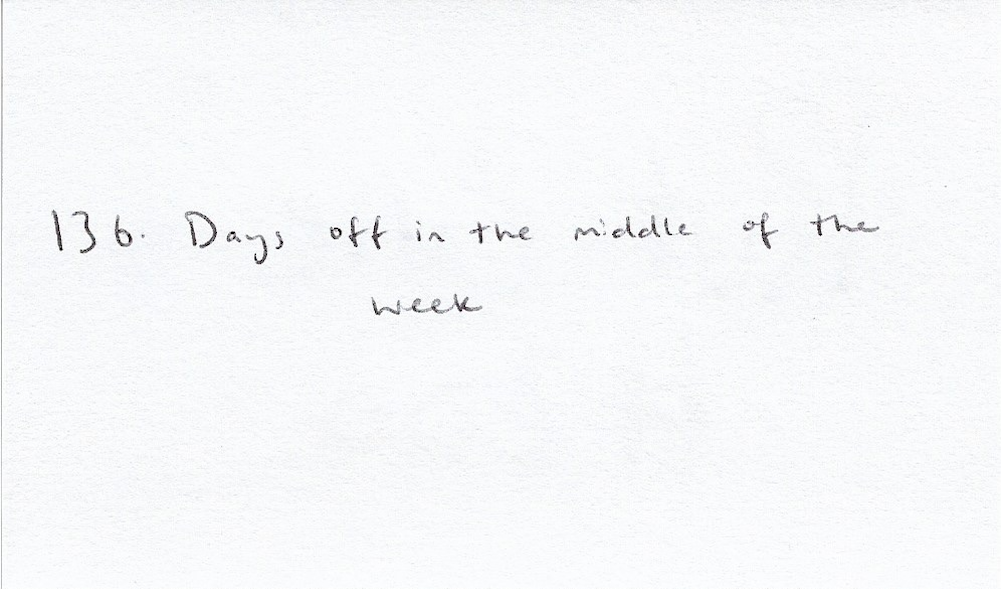 136. Days off in the middle of the
week